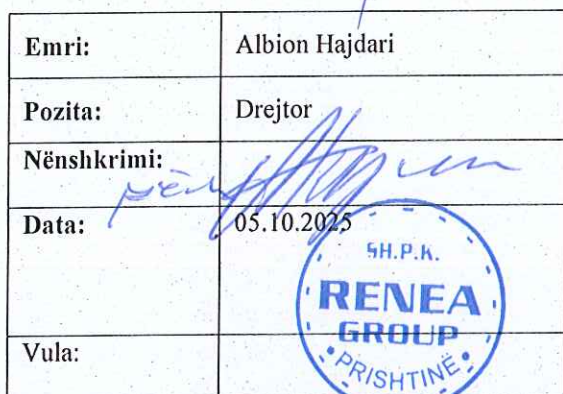 Emri: Albion Hajdari
Pozita: Drejtor
Nënshkrimi:
Data: 05.10.2025
SH.P.K.
RENEA
GROUP
PRISHTINË
Vula: